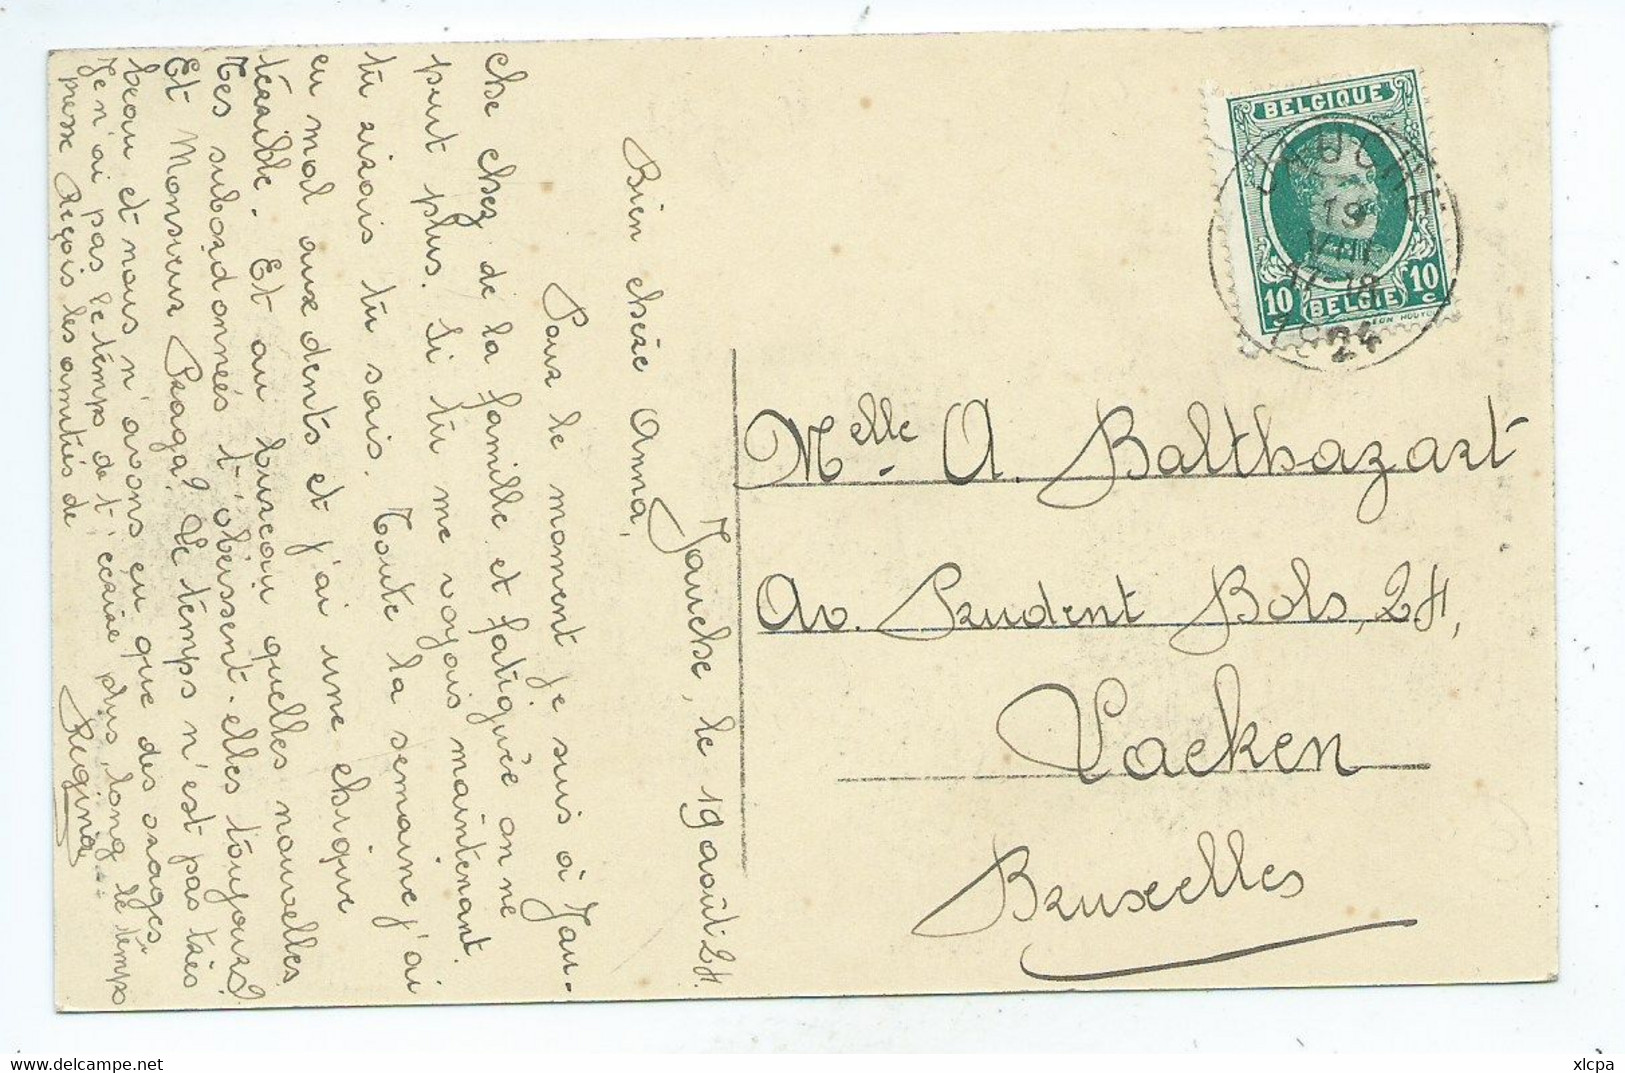 Jauche, le 19 août 24.
Bien chère Anna,
Pour le moment je suis à Jau-
che chez de la famille et fatiguée on ne
peut plus. Si tu me voyais maintenant
tu rirais tu sais. Toute la semaine j'ai
eu mal aux dents et j'ai une chique
terrible. Et au bureau quelles nouvelles
Tes subordonnés t'obéissent-elles toujours?
Et Monsieur Praga? Le temps n'est pas très
beau et nous n'avons eu que des orages.
Je n'ai pas le temps de t'écrire plus long le temps
presse Reçois les amitiés de
Regina
BELGIQUE
JAUCHE
19
VIII
17-18
1924
10 10
BELGIE C
Melle A. Balthazart
Av. Prudent Bols, 24,
Laeken
Bruxelles
xlcpa